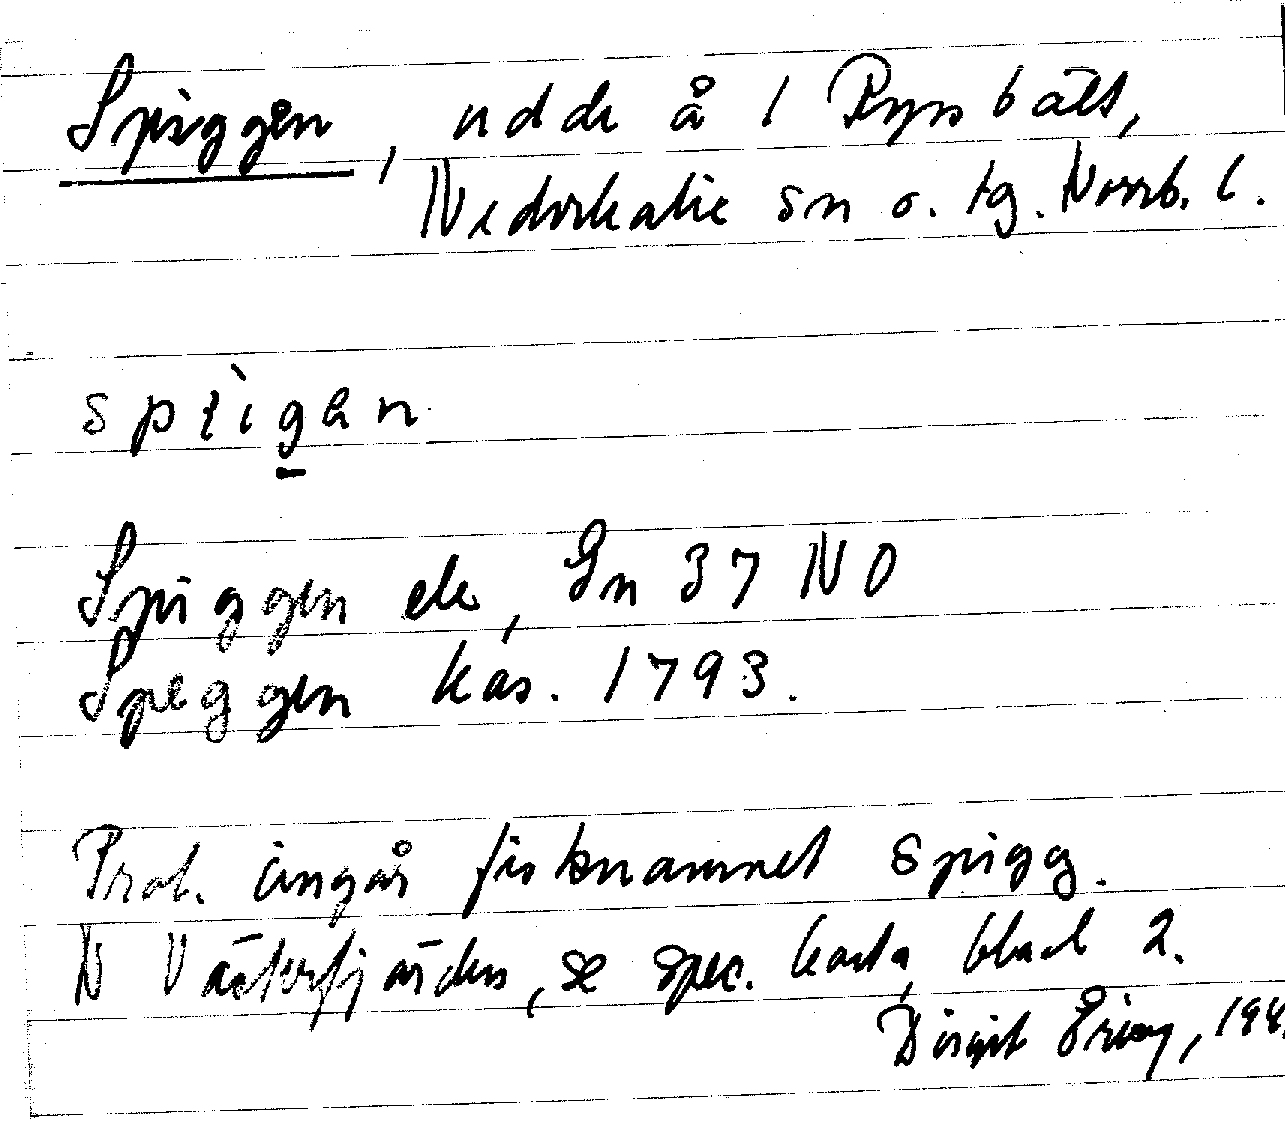 Spiggen, udde å 1 Ryssbält,
Nederkalix sn o. tg. Norrb. l.
spı̀gen
Spiggen ek, Gn 37 NO
Speggen kas. 1793.
Prob. ingår fisknamnet spigg.
N Västerfjärden, se spec. karta, blad 2.
Birgit